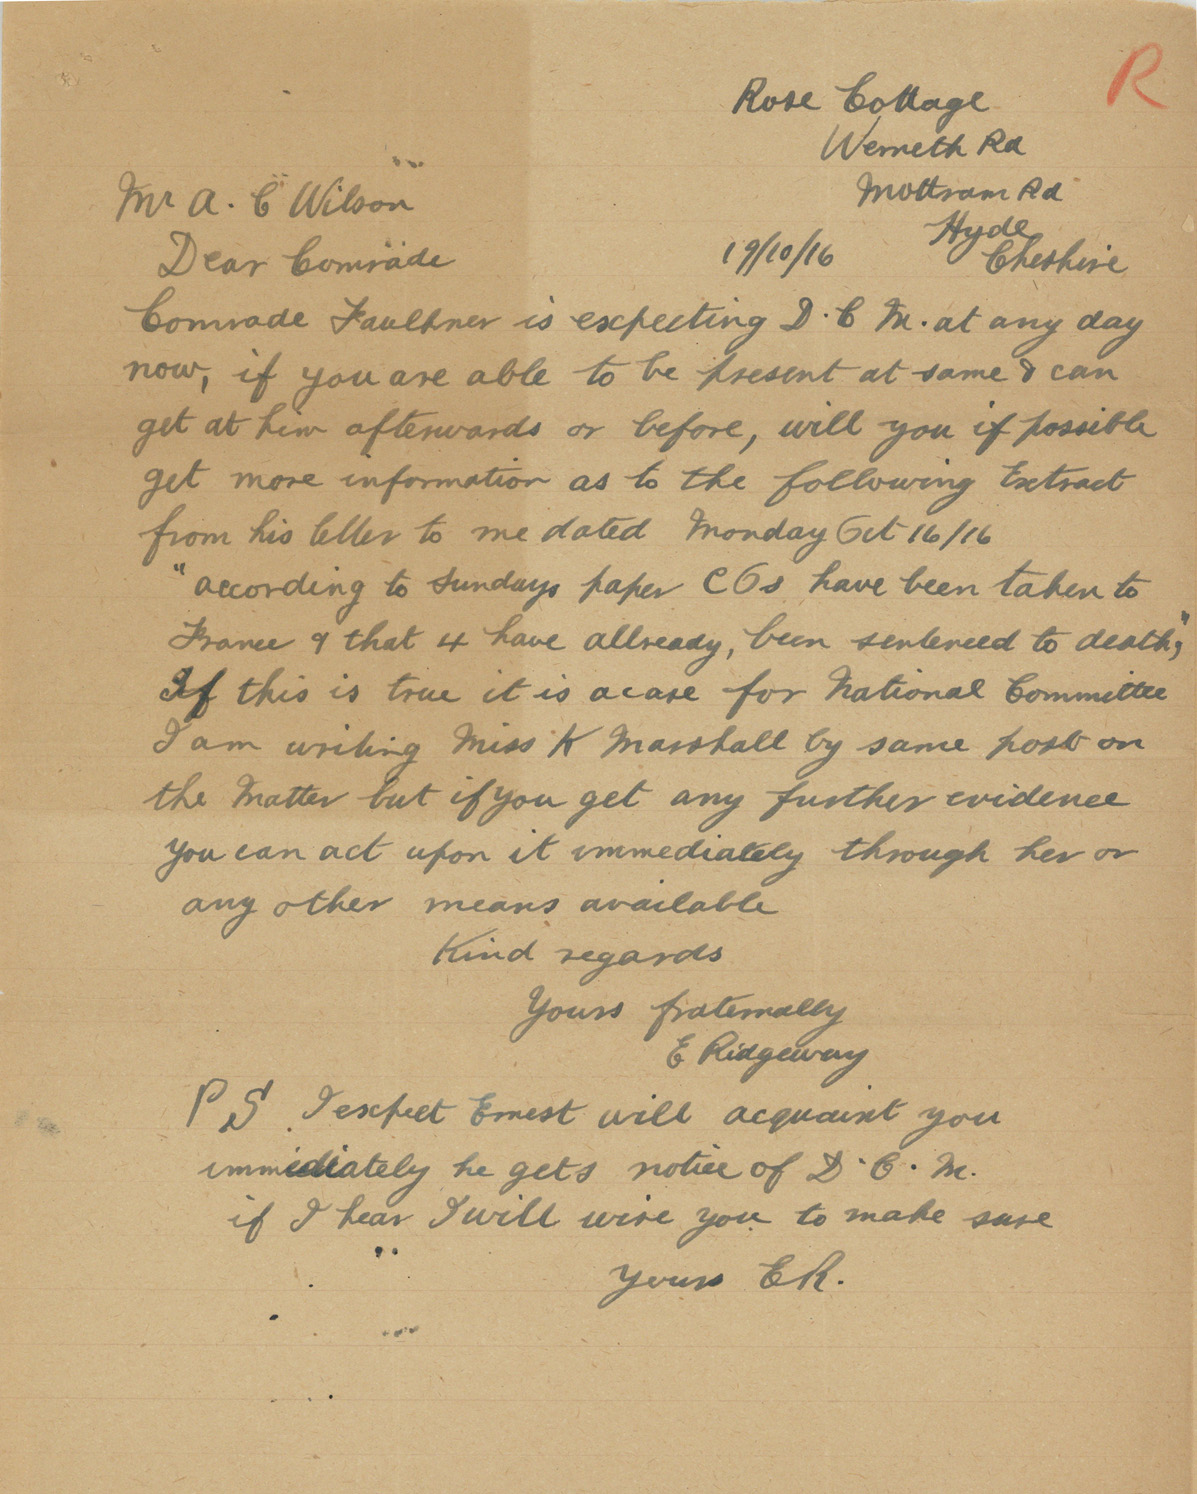 R
Rose Cottage
Werneth Rd
Mottram Rd
Hyde
Cheshire
Mr A. C Wilson
19/10/16
Dear Comrade
Comrade Faulkner is expecting D. C M. at any day
now, if you are able to be present at same & can
get at him afterwards or before, will you if possible
get more information as to the following Extract
from his letter to me dated Monday Oct 16/16
"according to Sundays paper COs have been taken to
France & that 4 have allready, been sentenced to death,"
If this is true it is a case for National Committee
I am writing Miss K Marshall by same post on
the Matter but if you get any further evidence
you can act upon it immediately through her or
any other means available
Kind regards
Yours fraternally
E Ridgeway
P S. I expect Ernest will acquaint you
immediately he gets notice of D. C. M.
if I hear I will wire you to make sure
Yours ER.